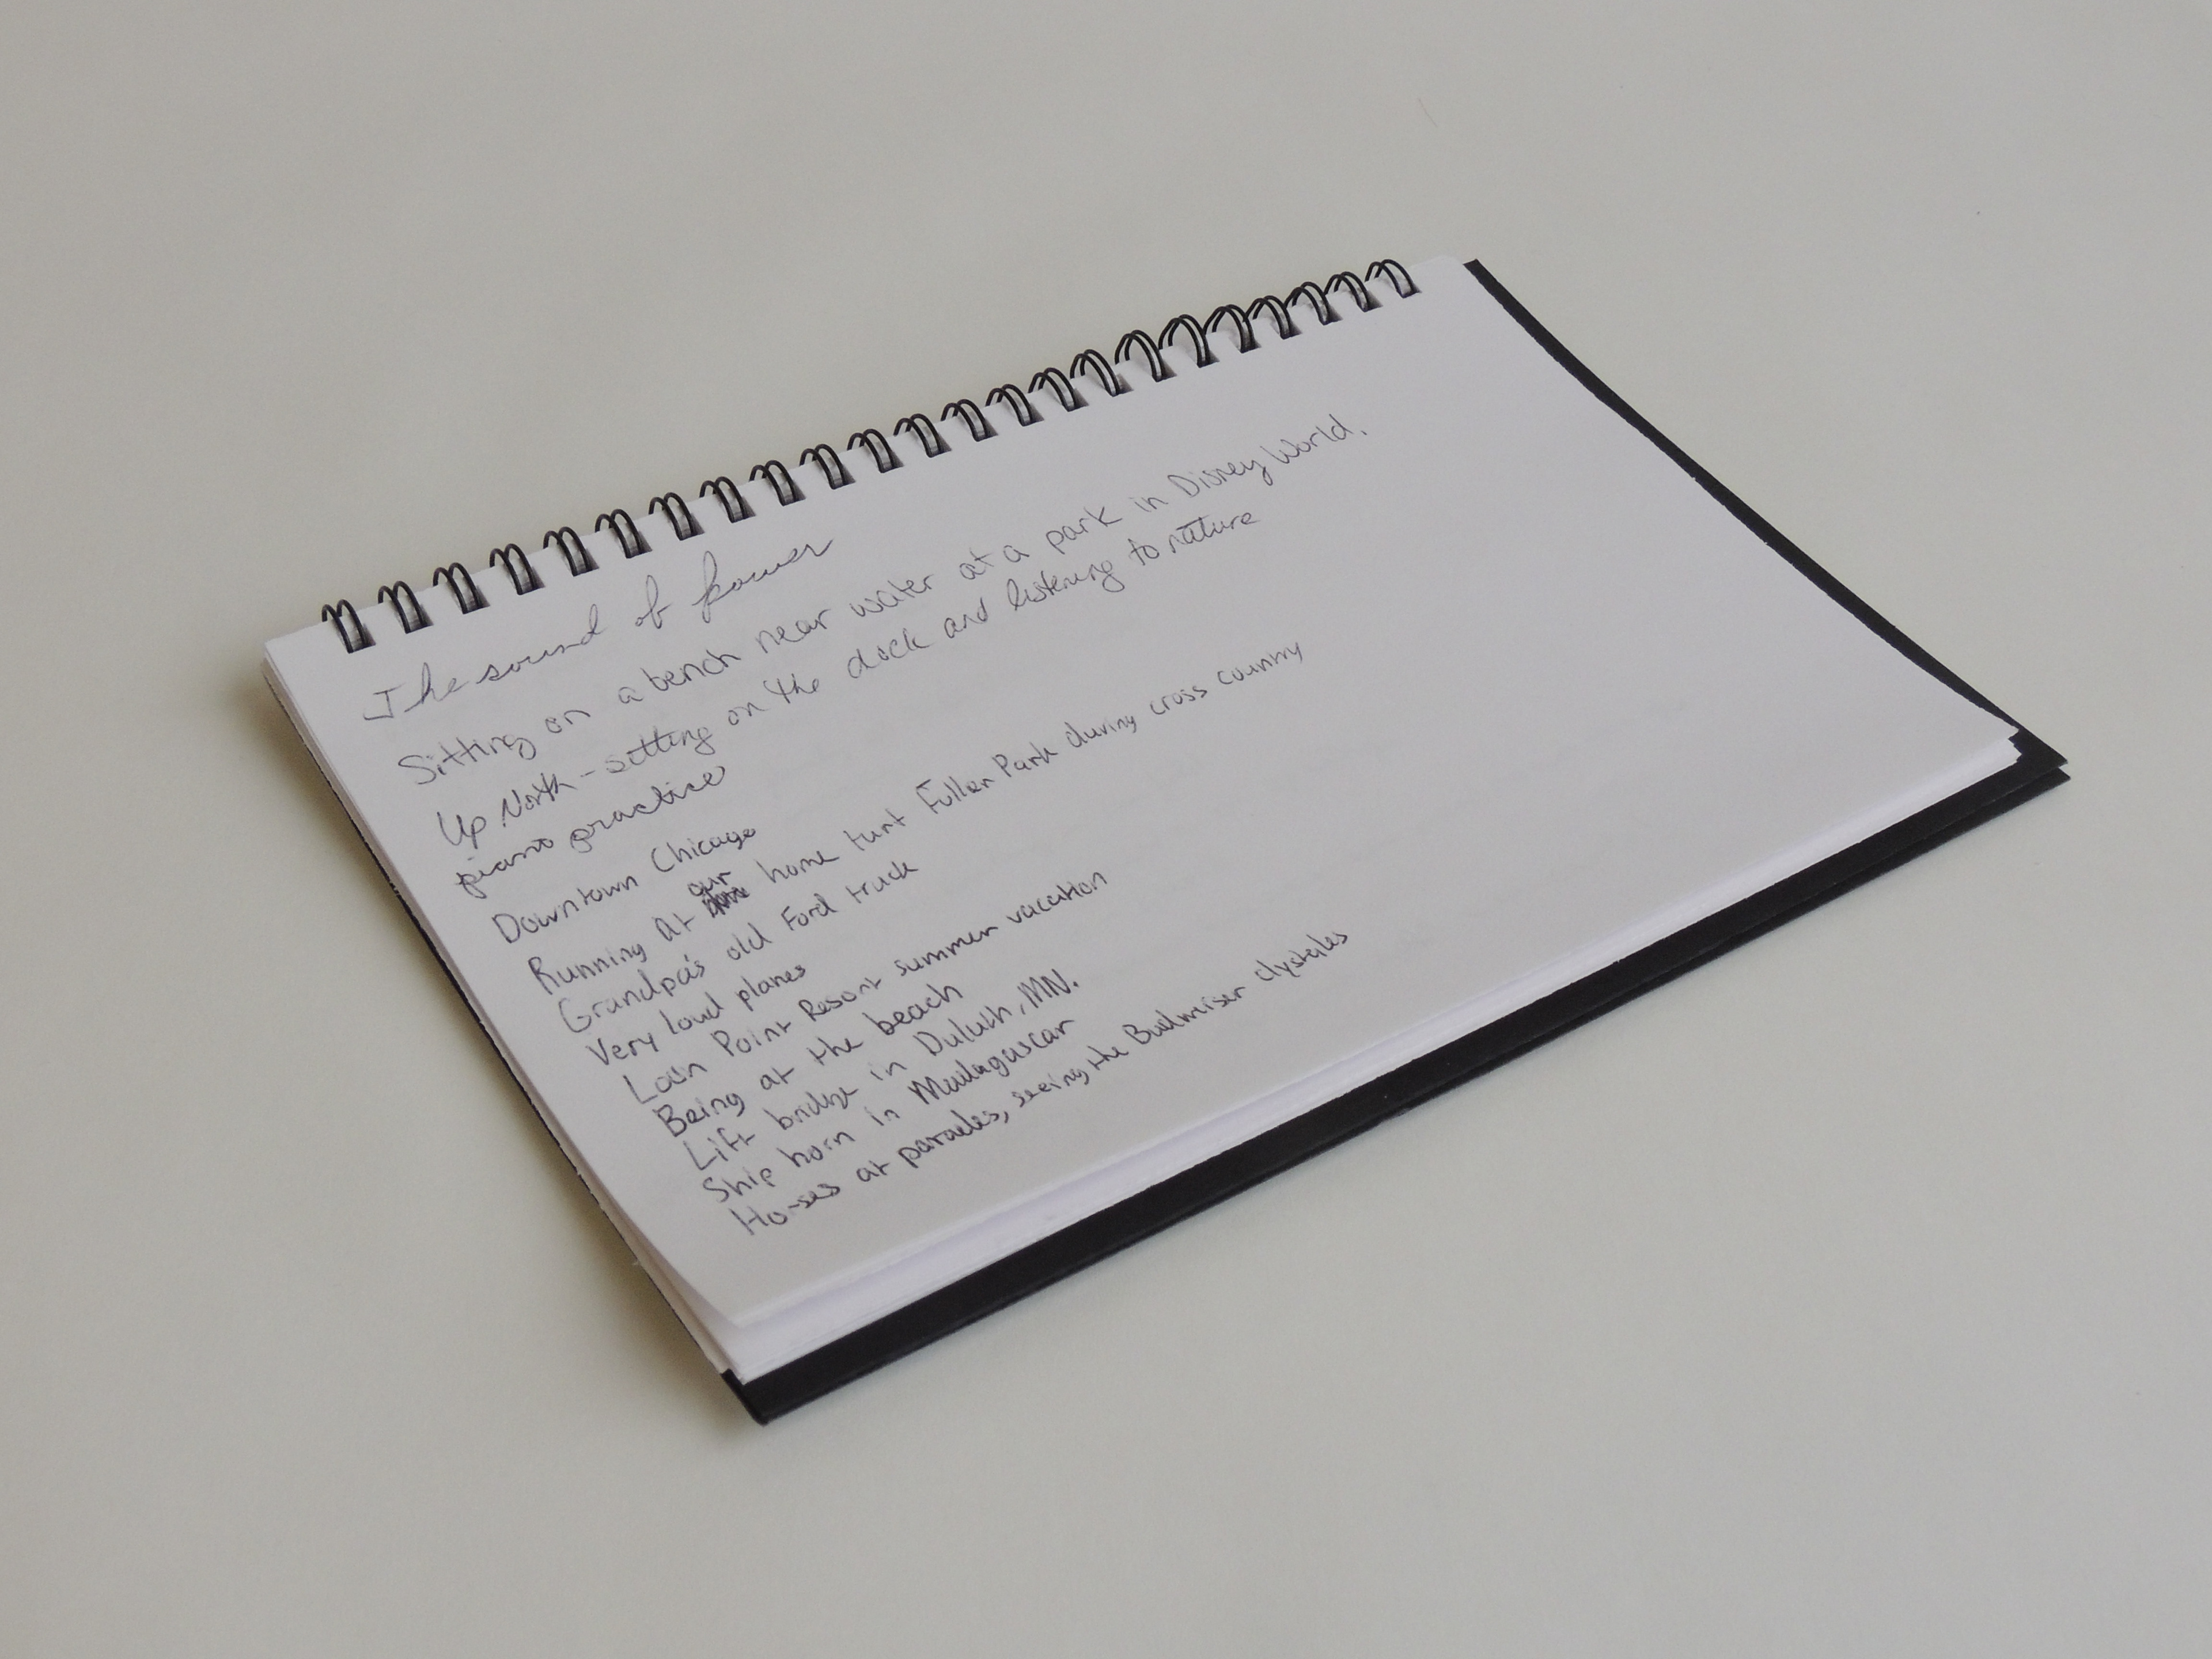 The sound of power
Sitting on a bench near water at a park in Disney World.
Up North - setting on the dock and listening to nature
piano practice
Downtown Chicago
Running at our home turf Fuller Park during cross country
Grandpa's old Ford truck
Very loud planes
Loon Point Resort summer vacation
Being at the beach
Lift bridge in Duluth, MN.
Ship horn in Madagascar
Horses at parades, seeing the Budwiser clystales